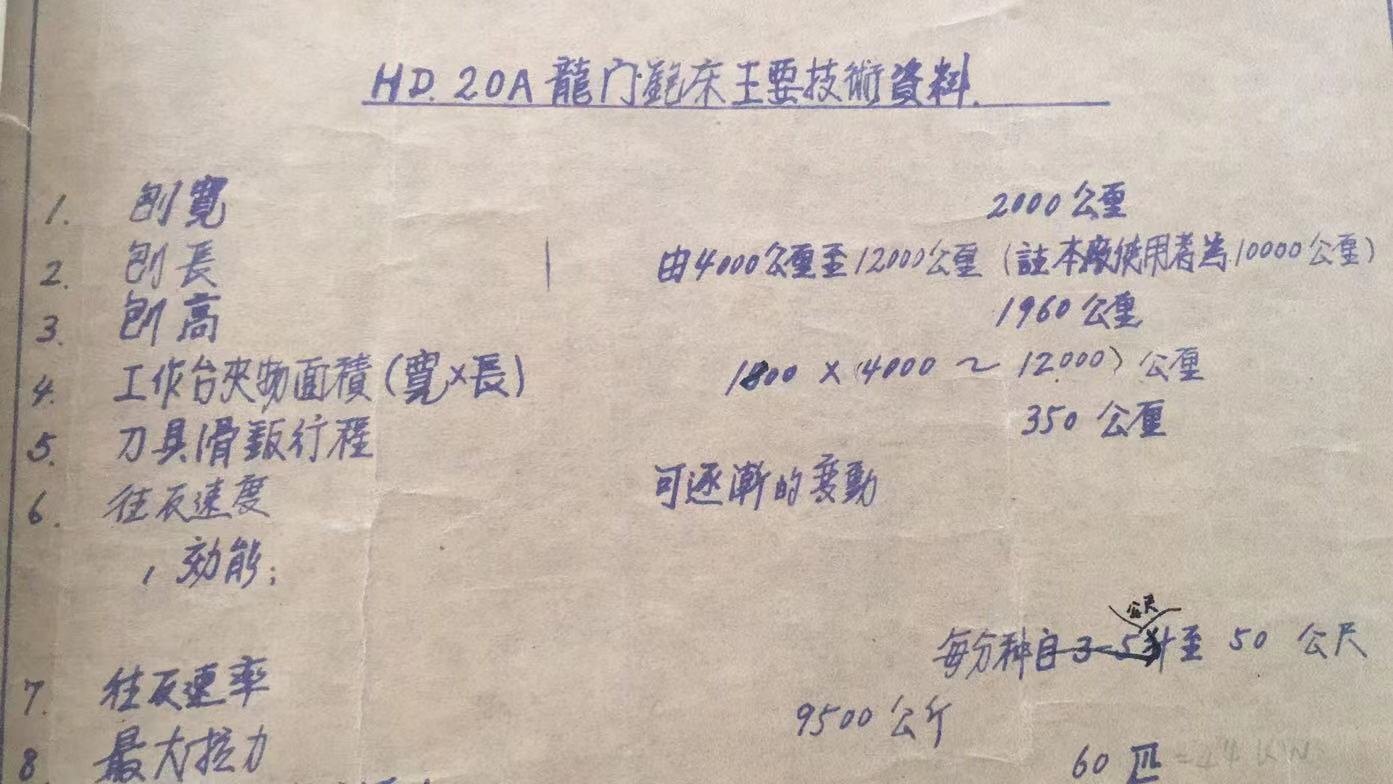 HD. 20A 龍门鉋床主要技術資料.
1. 刨寬 2000公厘
2. 刨長 由4000公厘至12000公厘 (註本廠使用者為10000公厘)
3. 刨高 1960公厘
4. 工作台夾物面積(寬×長) 1800×(4000~12000)公厘
5. 刀具滑鈑行程 350公厘
6. 往反速度 可逐漸的变動
, 効能:
公尺
7. 往反速率 每分种自3-5 至50公尺
8 最大拉力 9500公斤
60匹=44KW